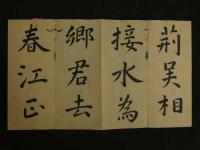 荆吴相
接水為
鄉君去
春江正